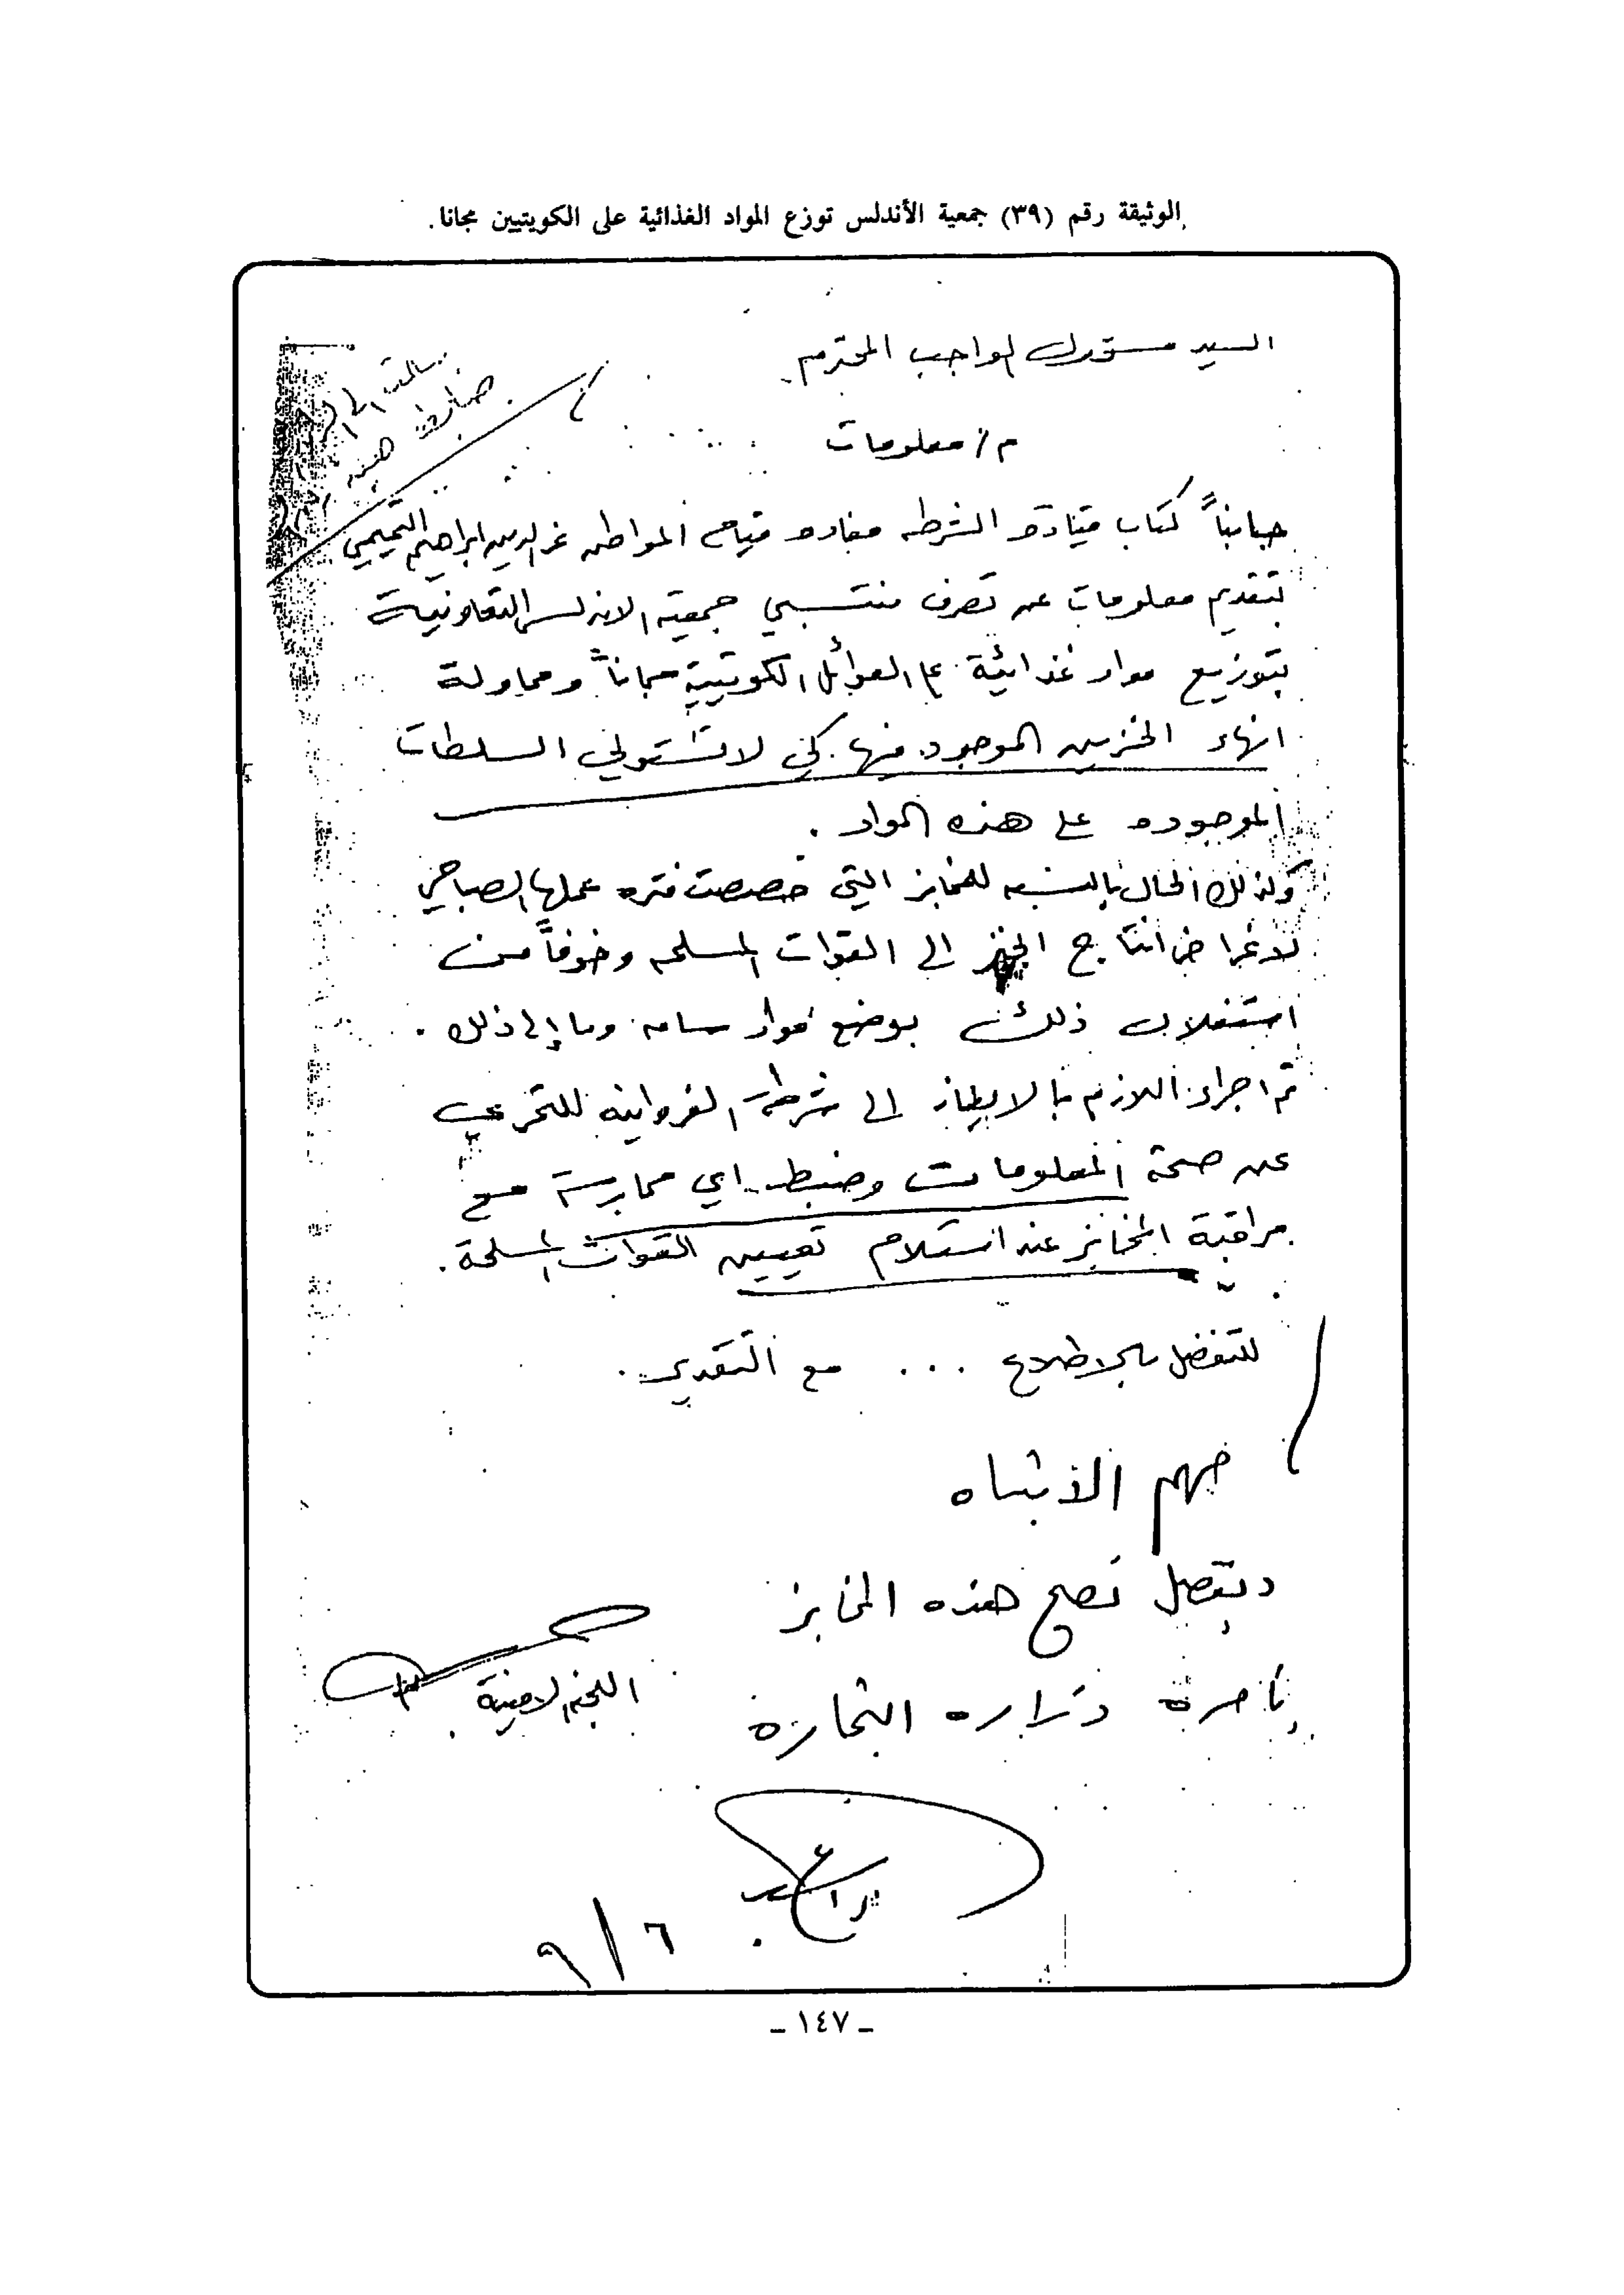 الوثيقة رقم (٣٩) جمعية الأندلس توزع المواد الغذائية على الكويتيين مجانا.
السيد مسؤول الواجب المحترم
م/ معلومات
كتاب قيادة الشرطه مفاده قيام المواطن عز الدين ابراهيم التميمي
بتقديم معلومات عن تصرف منتسبي جمعية الاندلس التعاونية
بتوزيع مواد غذائية على العوائل الكويتية مجاناً ومحاولة
انهاء الخزين الموجود فيها كي لا تستولي السلطات
الموجوده على هذه المواد .
وكذلك الحال بالنسبه للمخابز التي خصصت فتره عملها الصباحي
لاغراض انتاج الخبز الى القوات المسلحه وخوفاً من
استغلال ذلك بوضع مواد سامه وما إلى ذلك .
تم اجراء اللازم بالايعاز الى شرطة الفروانيه للتحري
عن صحة المعلومات وضبط اي ممارسة مع
مراقبة المخابز عند استلام تعيين القوات المسلحة .
للتفضل بالاطلاع ... مع التقدير .
مهم الانتباه
ويفضل نصح هذه المخابز
اللجنه الامنية
وزاره التجارة
٦/٩
ـ ١٤٧ ـ